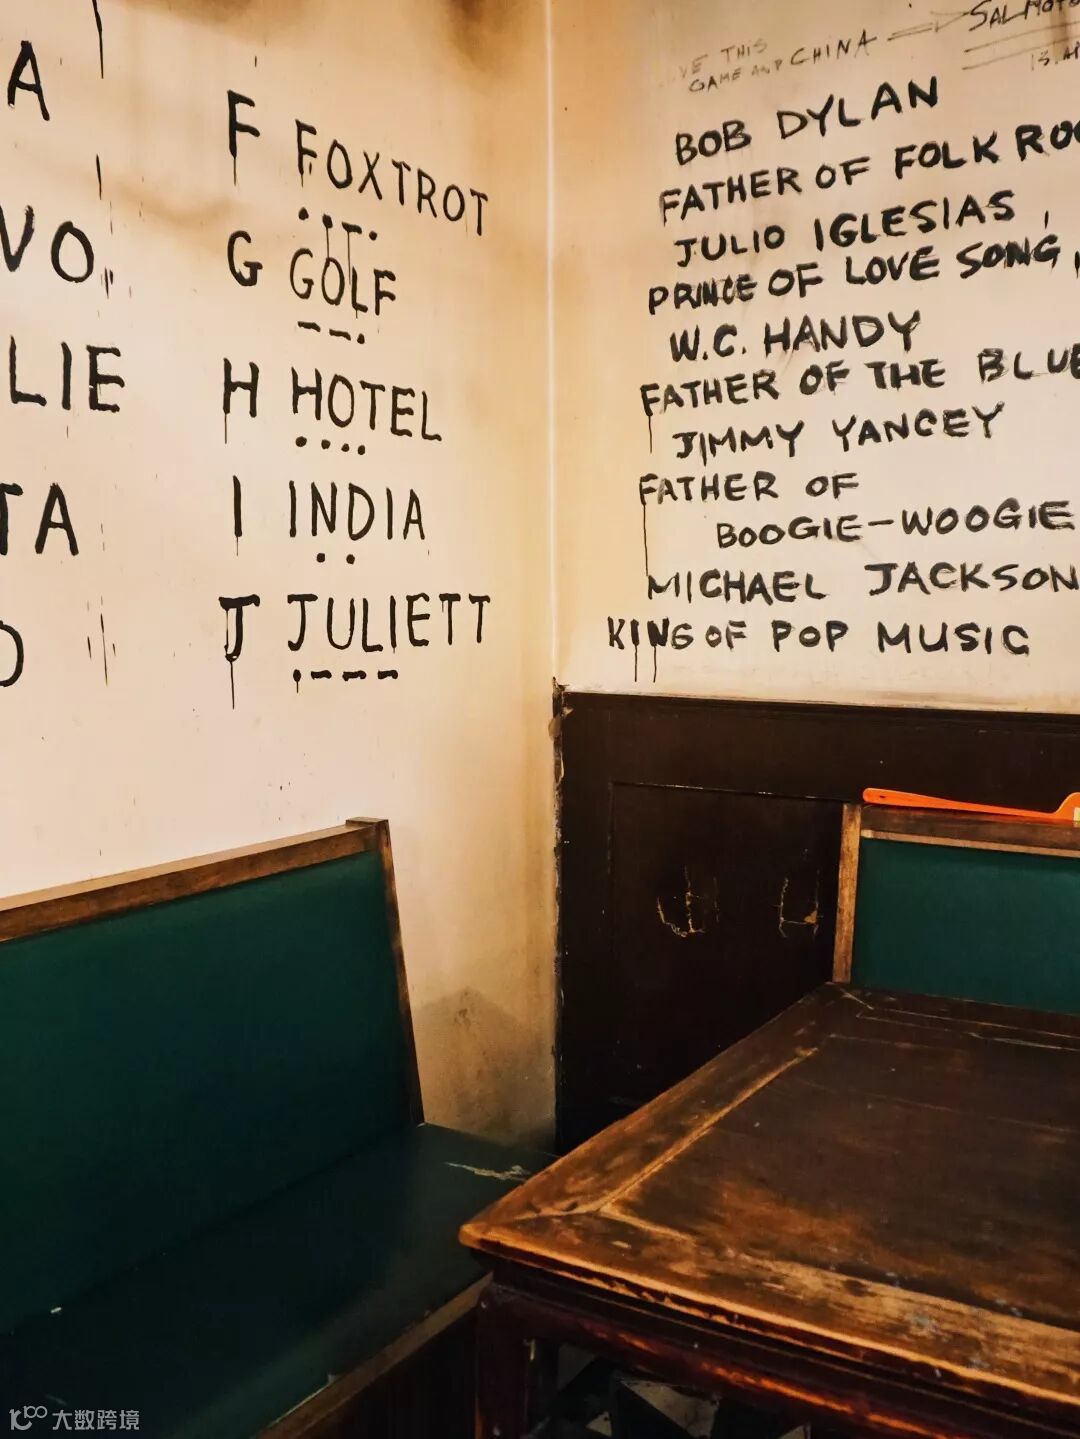 A
VO
LIE
TA
O
F FOXTROT
G GOLF
H HOTEL
I INDIA
J JULIETT
THIS
GAME AND CHINA
BOB DYLAN
FATHER OF FOLK ROC
JULIO IGLESIAS,
PRINCE OF LOVE SONG,
W.C. HANDY
FATHER OF THE BLUE
JIMMY YANCEY
FATHER OF
BOOGIE-WOOGIE
MICHAEL JACKSON
KING OF POP MUSIC
大数跨境